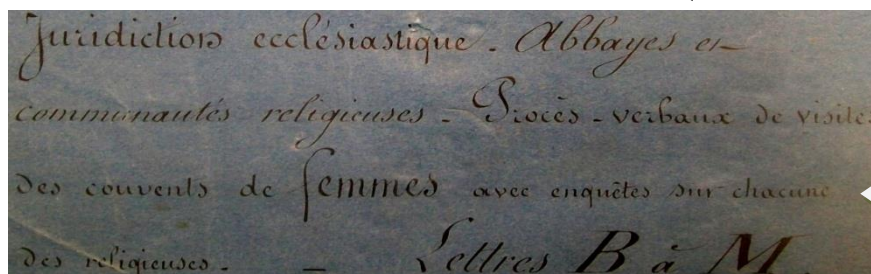 Juridiction ecclésiastique. Abbayes et
communautés religieuses. Procès-verbaux de visites
des couvents de femmes avec enquêtes sur chacune
des religieuses. — Lettres B à M